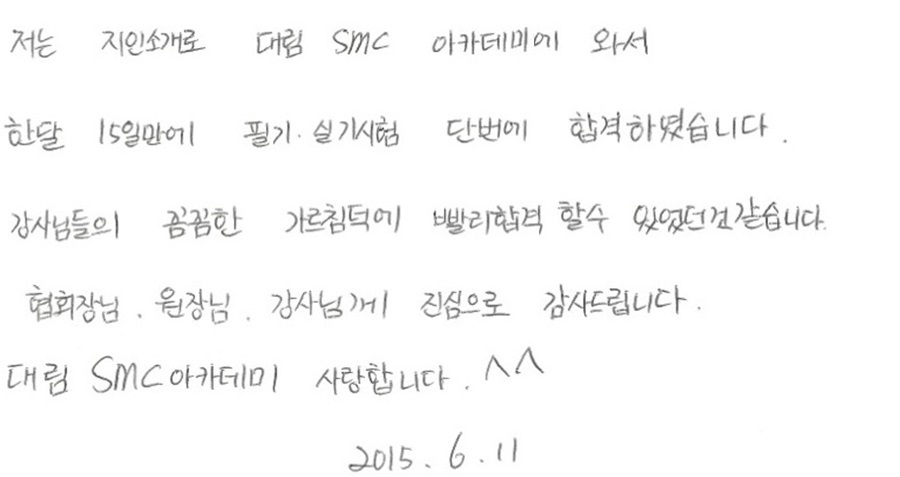 저는 지인소개로 대림 SMC 아카데미에 와서
한달 15일만에 필기·실기시험 단번에 합격하였습니다.
강사님들의 꼼꼼한 가르침덕에 빨리합격 할수 있었던것같습니다.
협회장님, 원장님, 강사님께 진심으로 감사드립니다.
대림 SMC아카데미 사랑합니다. ^^
2015. 6. 11